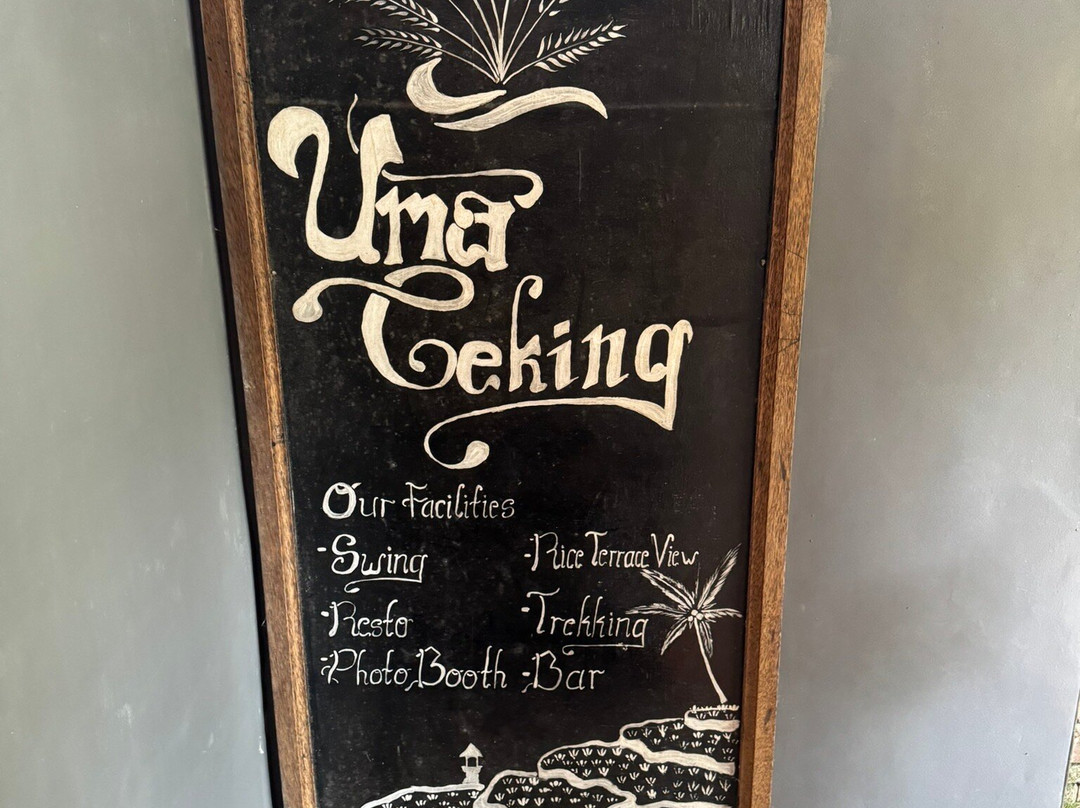 Uma
Ceking
Our Facilities
-Swing
-Resto
-Photo Booth
-Rice Terrace View
-Trekking
-Bar